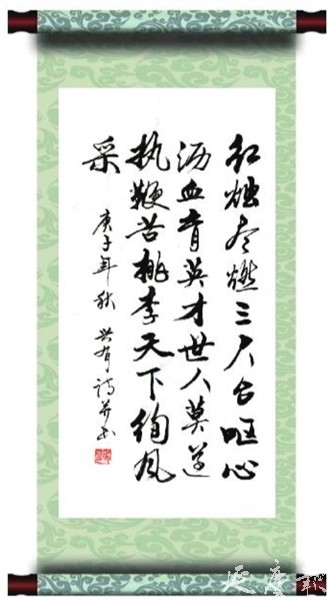 红烛尽燃三尺台呕心
沥血育英才世人莫道
执鞭苦桃李天下绚风
采
庚子年秋兴有诗并书
延慶报